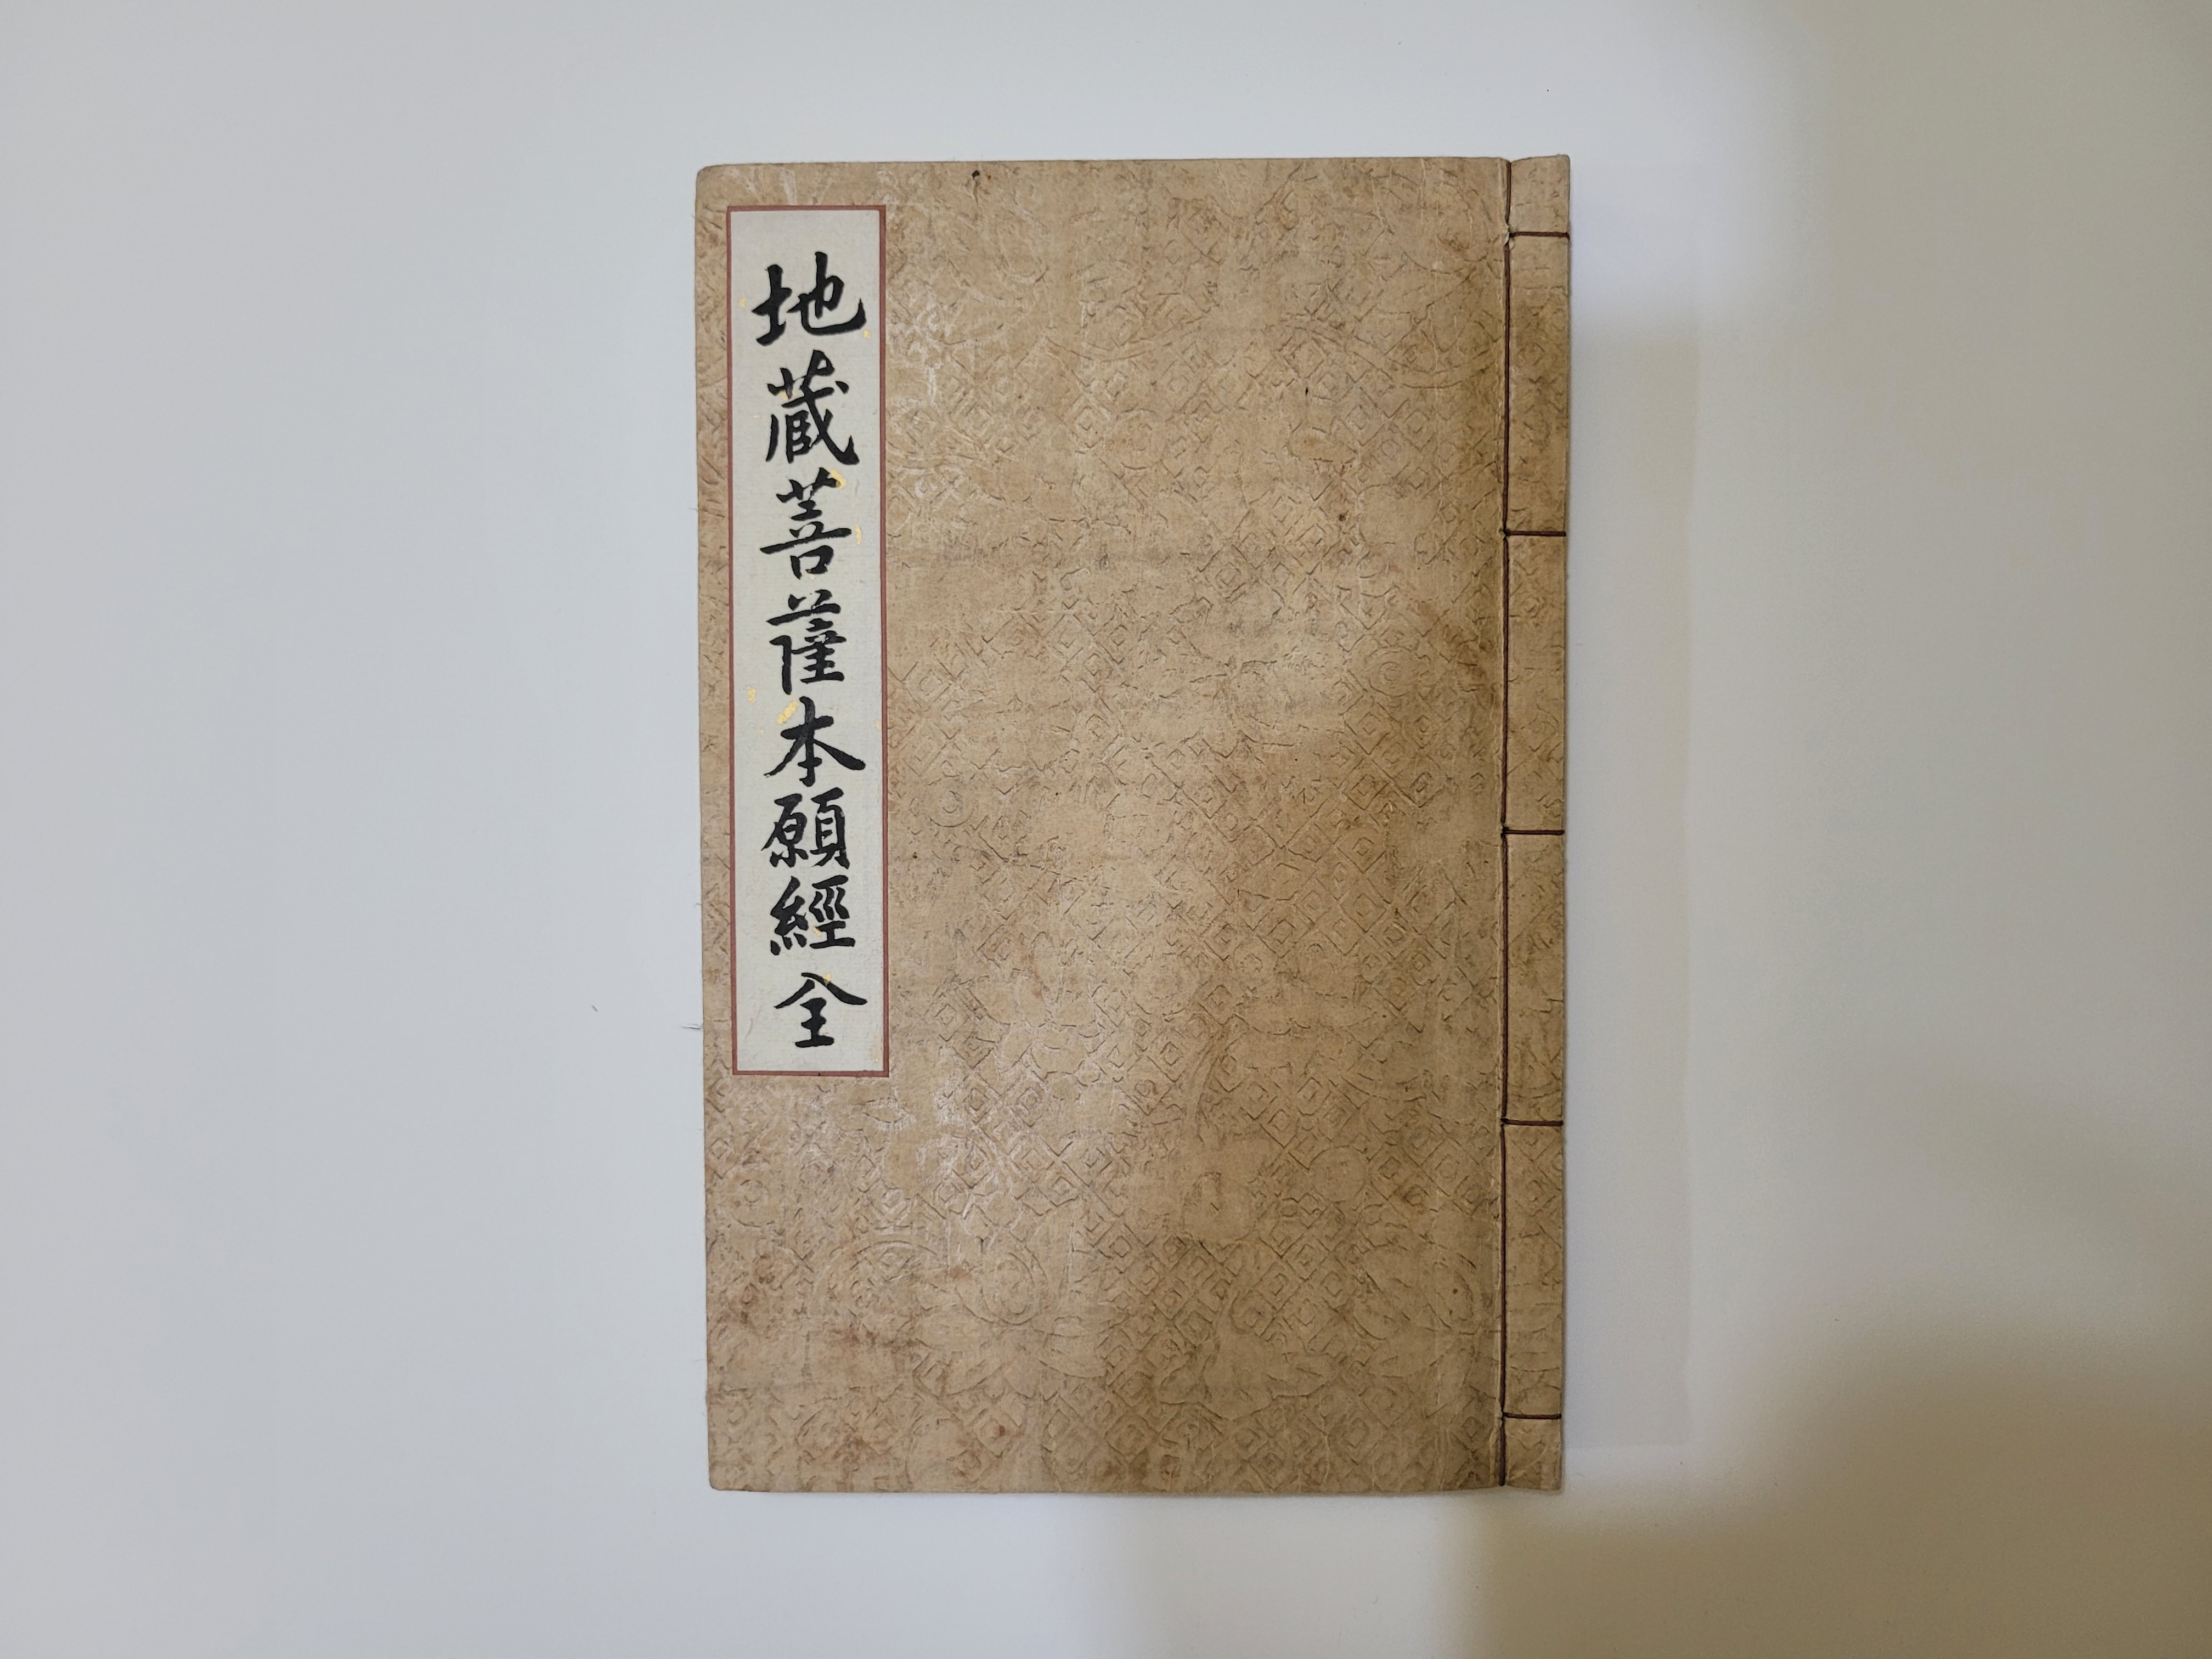 地蔵菩薩本願經 全